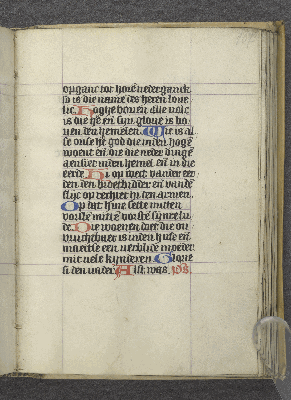 opganc tot haer nederganck
so is die name des heren love
lic. Hoghe boven alle volc
is die he en syn glorie is bo
ven den hemelen. Wie is al
se onse he god die inden hoge
woent en die die neder dinge
aensiet inden hemel en in die
eerde Hi op wect vander eer
den den
op rechtet in den armen.
Op dat hine sette mitten
vorste mitte vorste syns lu
de. Die woenen doet die on
vruchtber is inden huse en
moeder
mit vele kynderen Glorie
si den vader Alst was. ps.